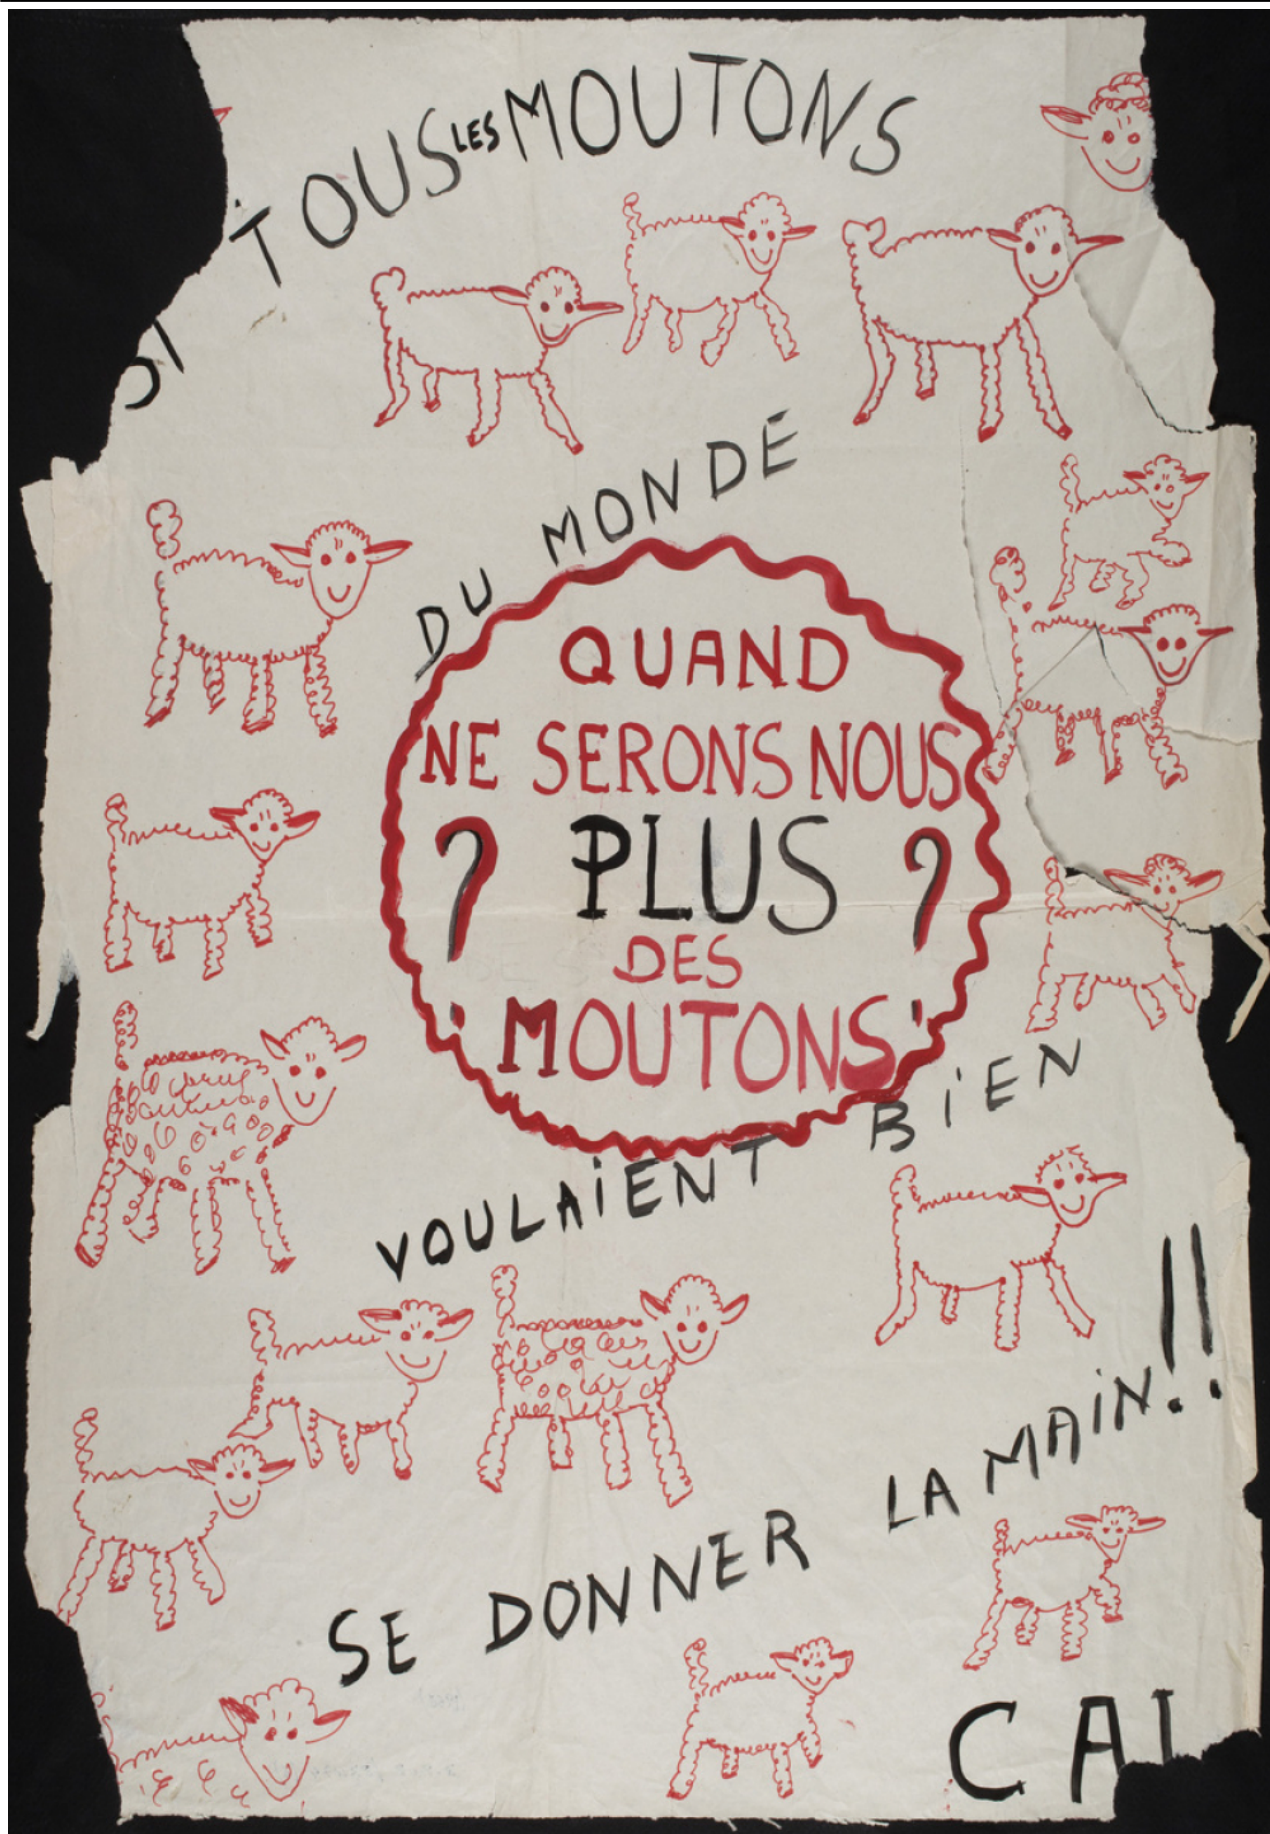 SI TOUS LES MOUTONS
DU MONDE
QUAND
NE SERONS NOUS
? PLUS ?
DES
'MOUTONS'
VOULAIENT BIEN
SE DONNER LA MAIN!!